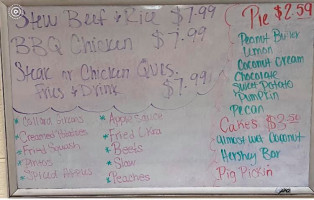 Stew Beef & Rice $7.99
BBQ Chicken $7.99
Steak or Chicken Ques.
Fries & Drink $7.99
* Collard Greens
* Creamed Potatoes
* Fried Squash
* Pintos
* Spiced Apples
* Applesauce
* Fried Okra
* Beets
* Slaw
* Peaches
Pie $2.59
Peanut Butter
Lemon
Coconut Cream
Chocolate
Sweet Potato
Pumpkin
Pecan
Cakes
Almost wet Coconut
Hershey Bar
Pig Pickin